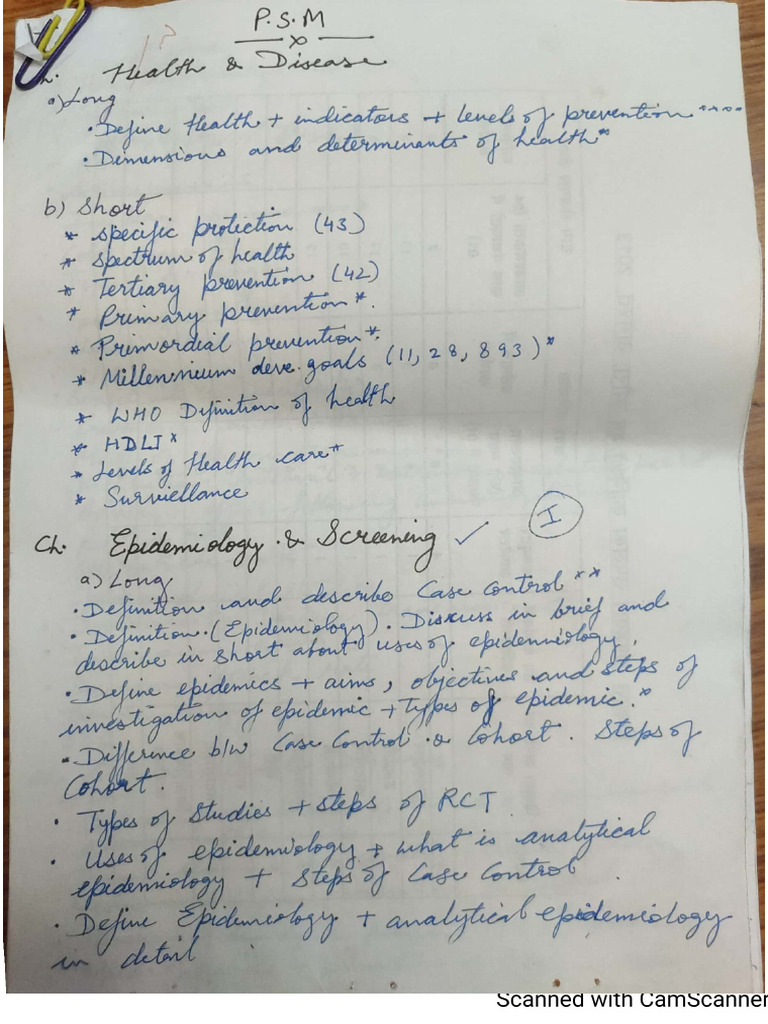 P.S.M
Ch. Health & Disease
a) Long
• Define Health + indicators + levels of prevention ****
• Dimensions and determinants of health*
b) Short
* specific protection (43)
* spectrum of health
* Tertiary prevention (42)
* Primary prevention*.
* Primordial prevention*.
* Millennieum deve. goals (11, 28, 893)*
* WHO Definition of health
* HDLI*
* Levels of Health care*
* Surviellance
I
Ch. Epidemiology & Screening ✓
a) Long
• Definition and describe Case Control **
• Definition. (Epidemiology). Discuss in brief and
describe in short about uses of epidemiology.
• Define epidemics + aims, objectives and steps of
investigation of epidemic + types of epidemic.*
• Difference b/w Case Control & Cohort. Steps of
Cohort.
• Types of Studies + steps of RCT.
• Uses of epidemiology + what is analytical
epidemiology + Steps of Case Control
• Define Epidemiology + analytical epidemiology
in detail
Scanned with CamScanner